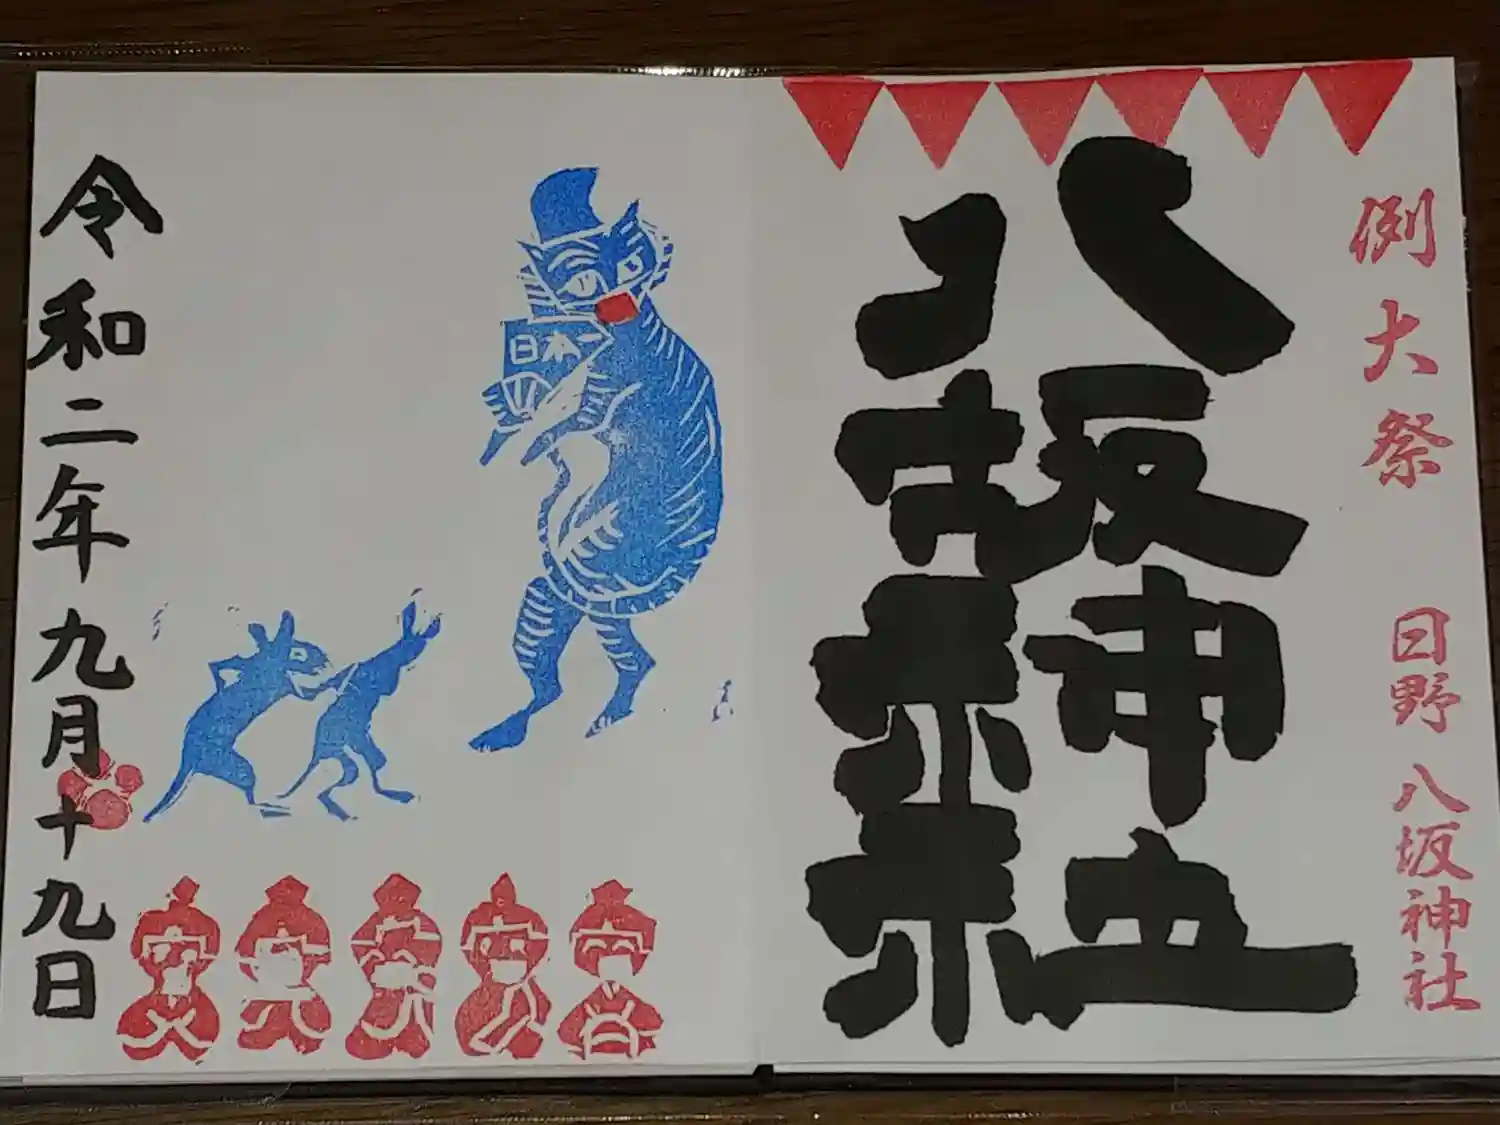 例大祭
日野八坂神社
八坂神社
日本一
令和二年九月十九日